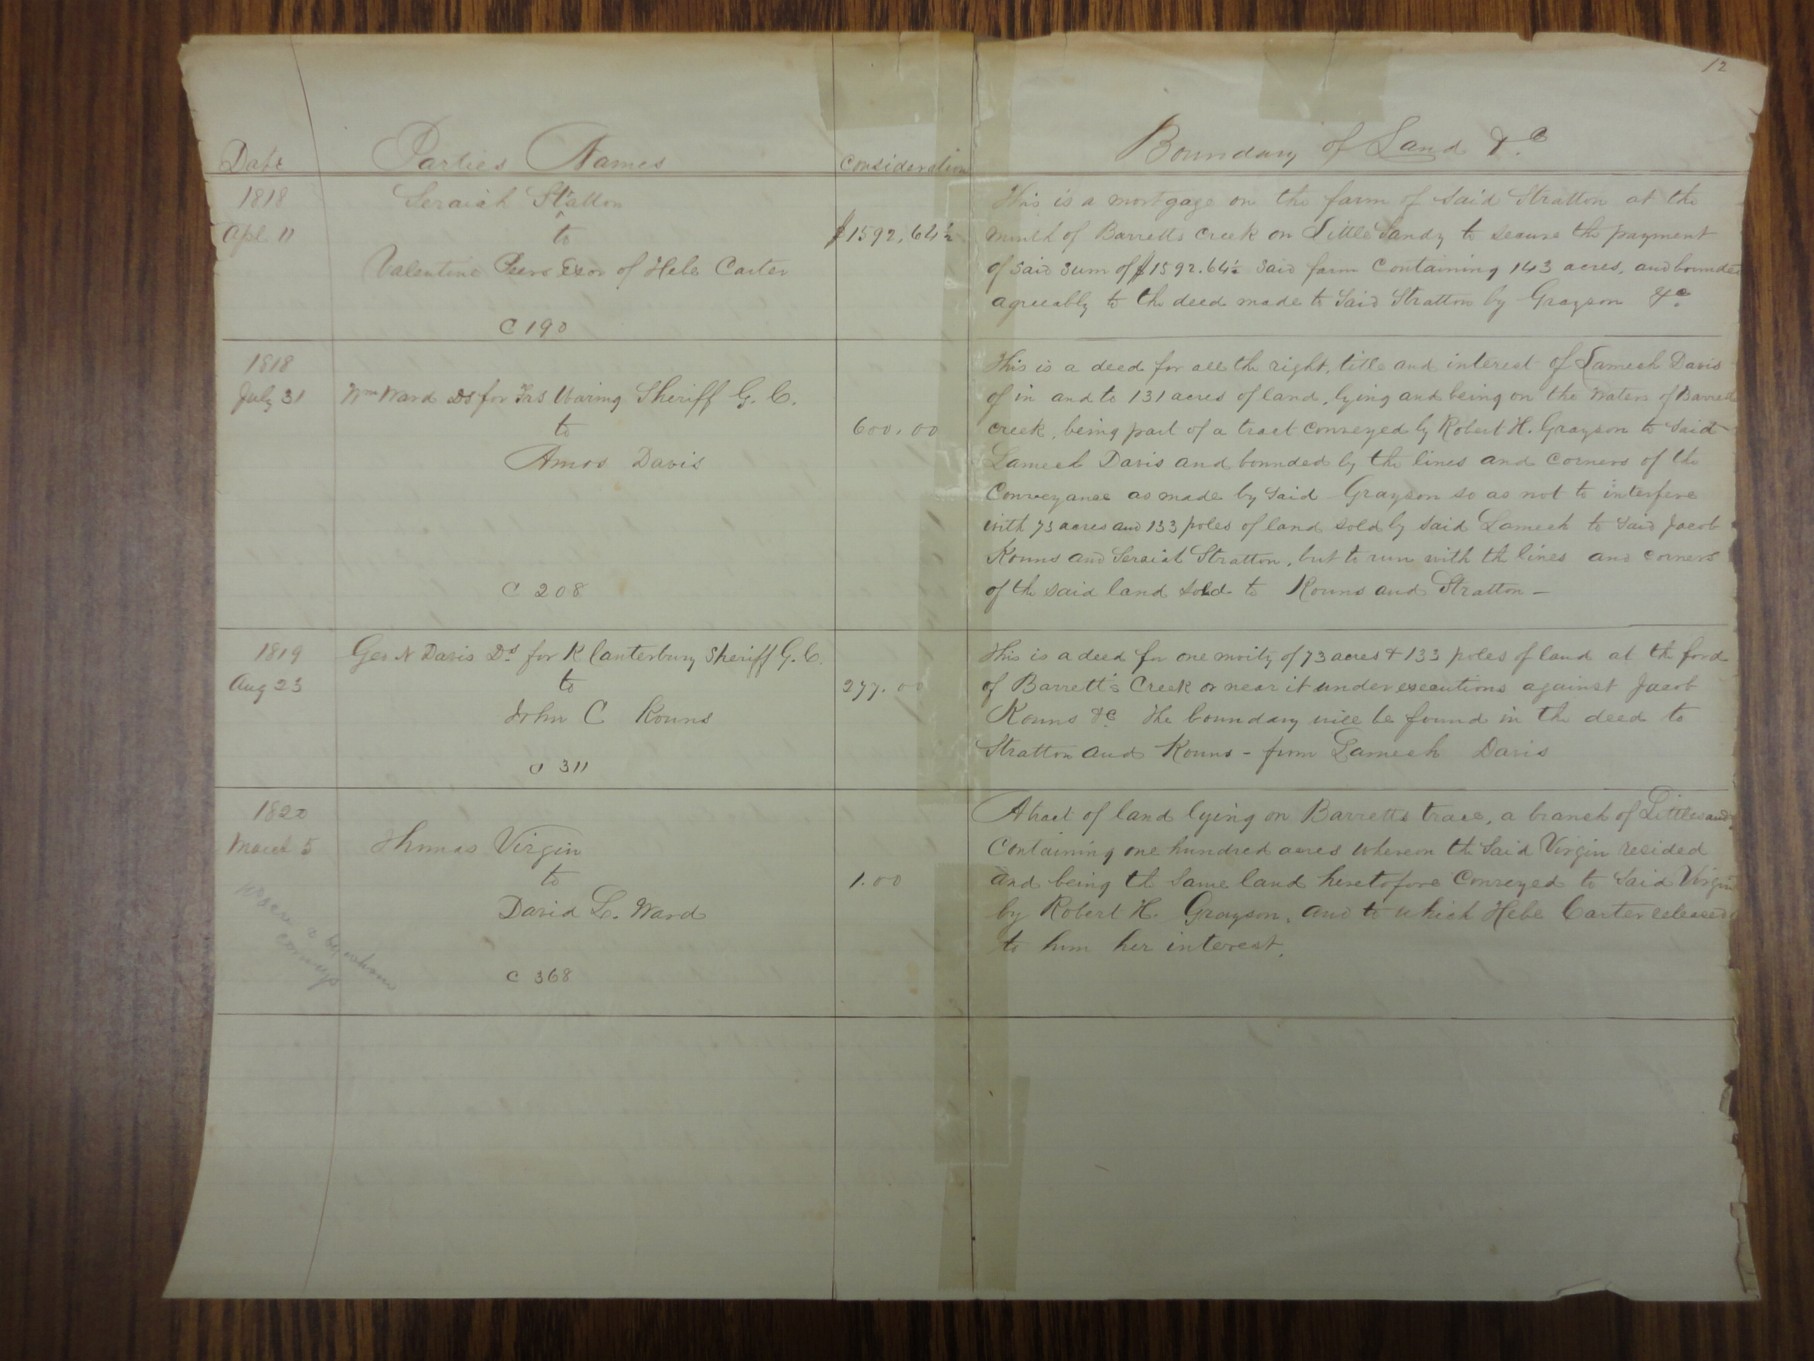 12
Date Parties Names Consideration Boundary of Land &c
1818
Apl. 11
Seraiah Statton
to
Valentine Peers Exor of Hebe Carter
C 190
$1592.64½
This is a mortgage on the farm of said Stratton at the
mouth of Barretts Creek on Little Sandy to secure the payment
of said sum of $1592.64½ said farm containing 143 acres, and bounded
agreeably to the deed made to said Stratton by Grayson &c
1818
July 31
Wm Ward DS for Frs Waring Sheriff G. C.
to
Amos Davis
C 208
600.00
This is a deed for all the right, title and interest of Lamech Davis
of in and to 131 acres of land, lying and being on the waters of Barrett
creek, being part of a tract conveyed by Robert H. Grayson to said
Lamech Davis and bounded by the lines and corners of the
Conveyance as made by said Grayson so as not to interfere
with 73 acres and 133 poles of land sold by said Lamech to said Jacob
Kouns and Seraiah Stratton, but to run with th lines and corners
of th said land sold to Kouns and Stratton -
1819
Aug 23
Geo N Davis Ds for R Canterbury Sheriff G. C.
to
John C Kouns
C 311
277.00
This is a deed for one moity of 73 acres & 133 poles of land at th ford
of Barrett's Creek or near it under executions against Jacob
Kouns &c The boundary will be found in the deed to
Stratton and Kouns - from Lamech Davis
1820
March 5
Thomas Virgin
to
David L. Ward
C 368
1.00
A tract of land lying on Barretts trace, a branch of Little sandy
Containing one hundred acres whereon th said Virgin resided
and being th same land heretofore conveyed to said Virgin
by Robert H. Grayson, and to which Hebe Carter released
to him her interest.
where & by whom
conveyed